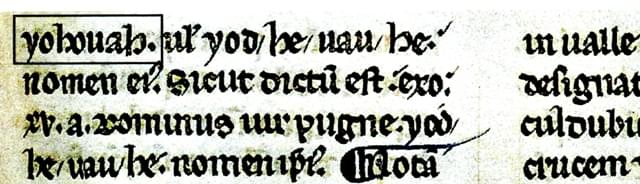 yohouah. ul' yod/ he/ uau/ he.
nomen ei'. Sicut dictū est .exo.
xv. a. Dominus uir pugne. yod/
he/ uau/ he. nomen ip̄i'. Notā
in ualle
designat
culdubi
crucem